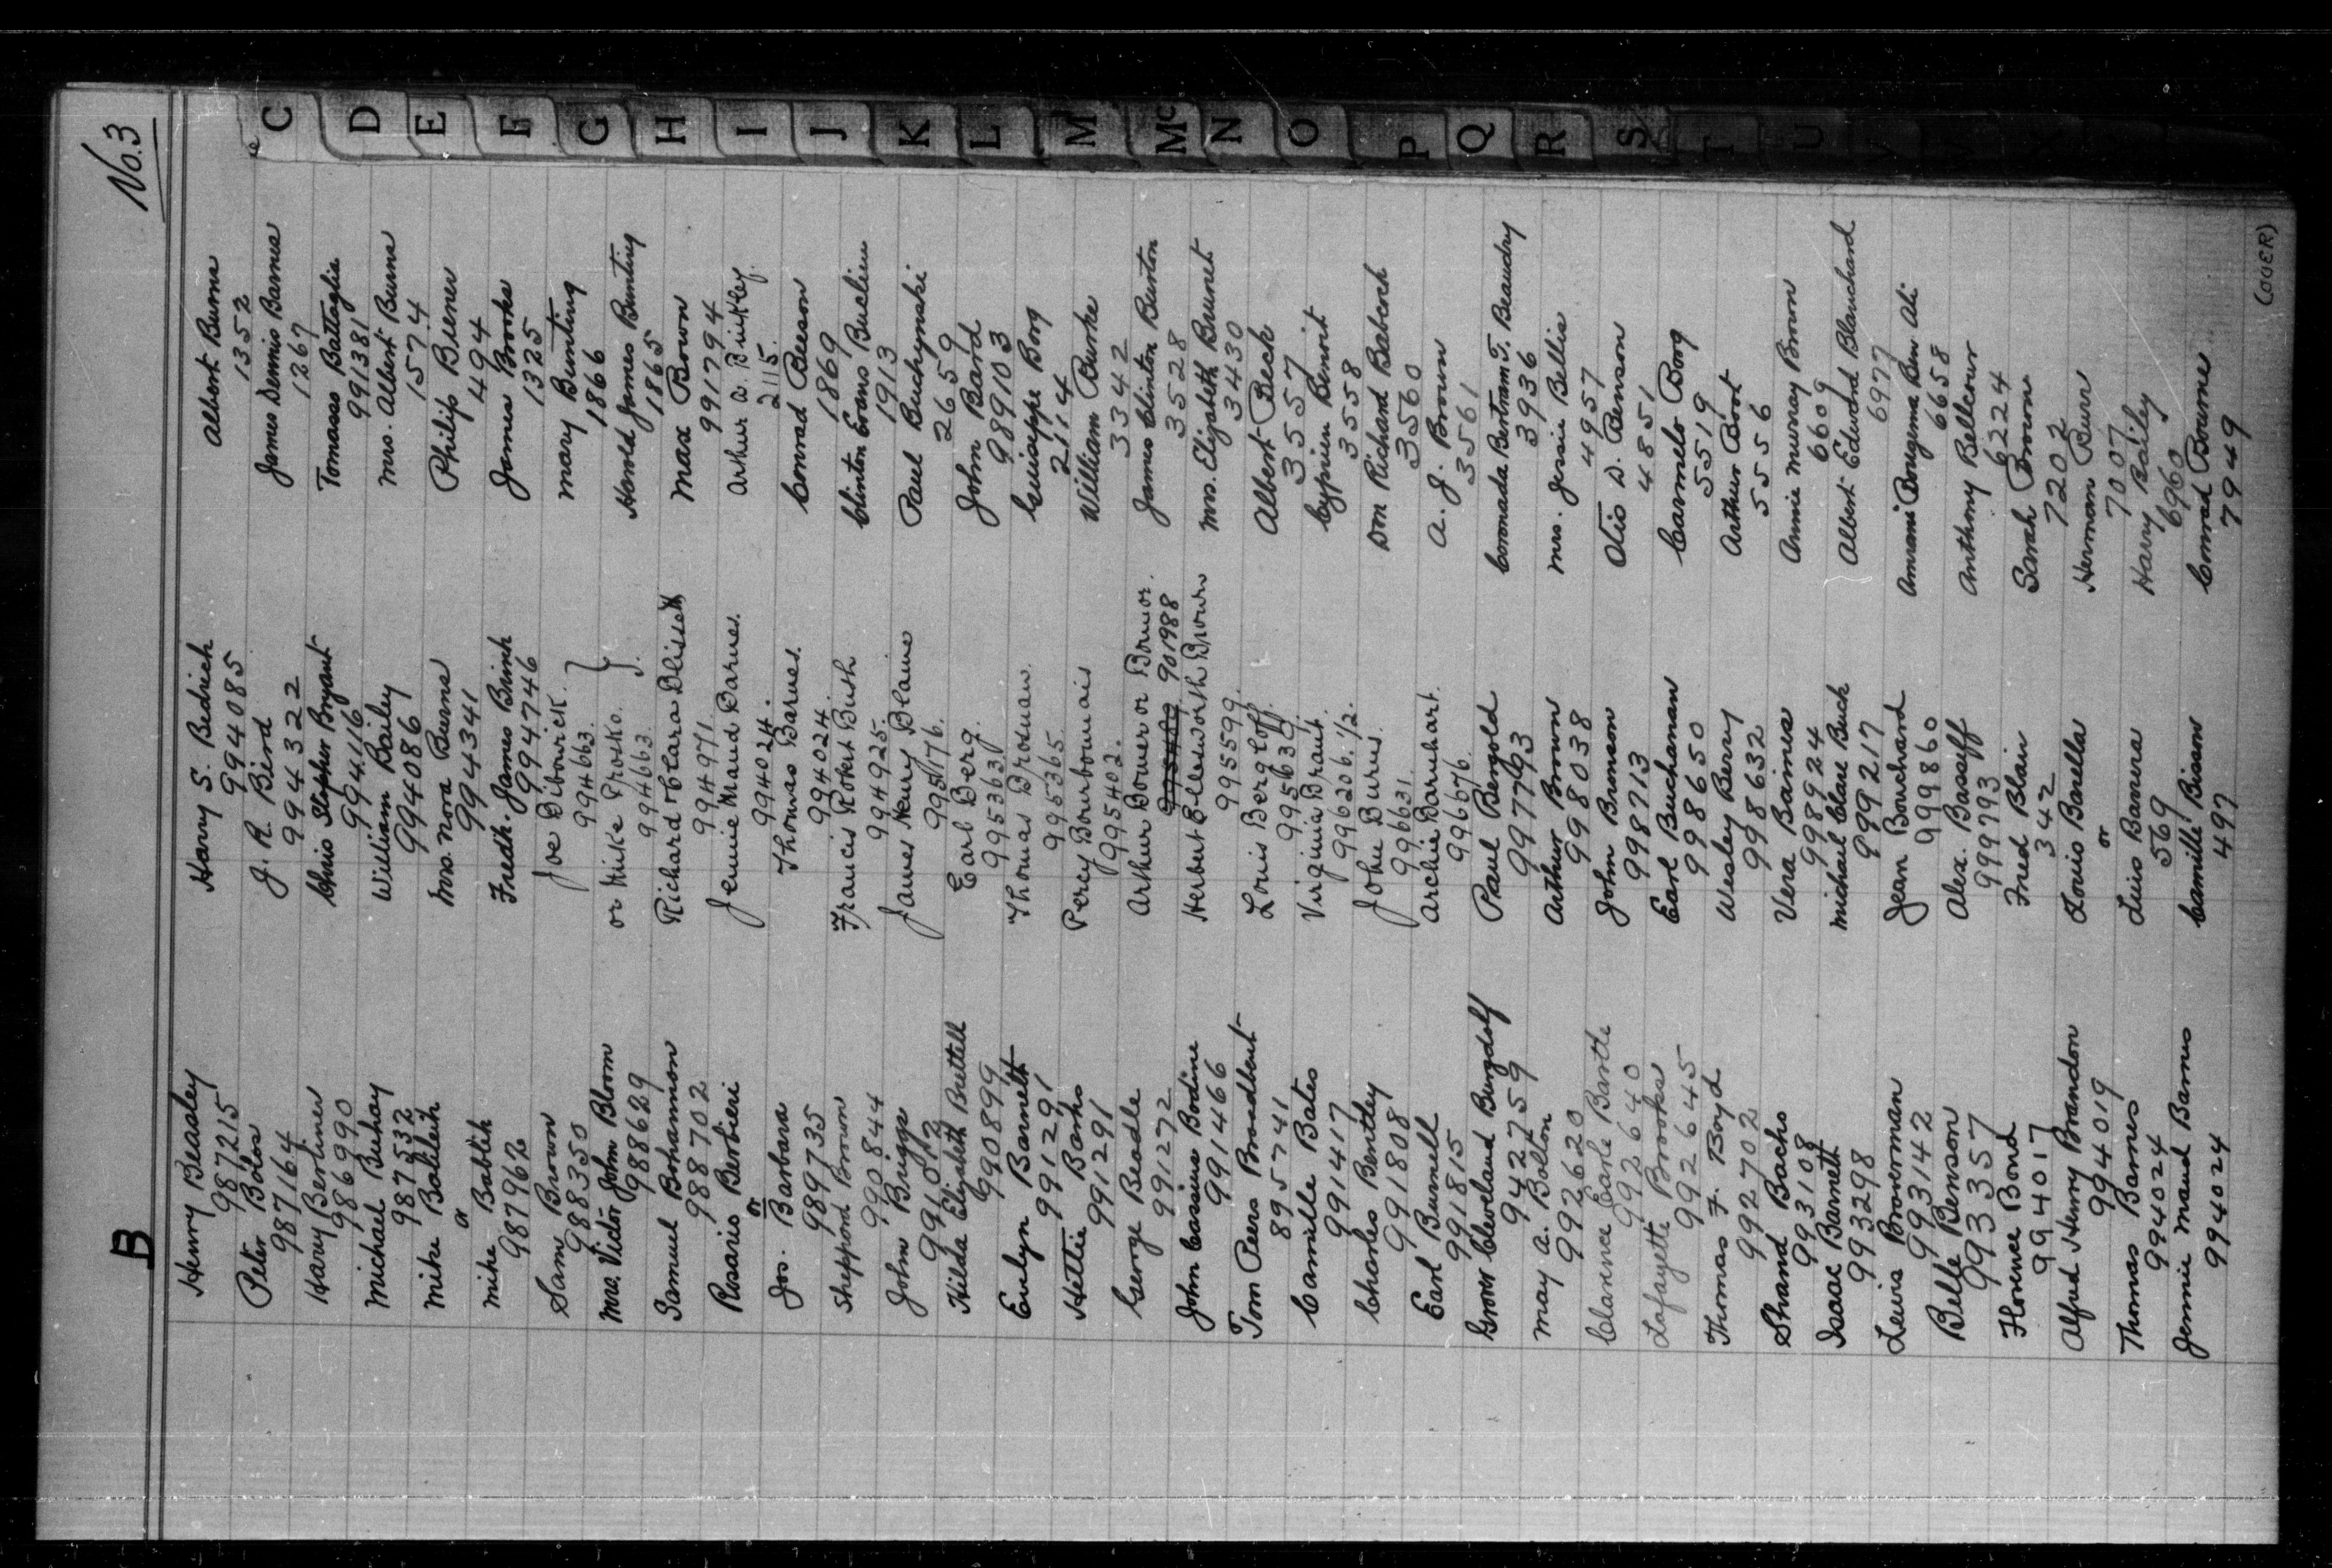 B
No. 3
Henry Beasley
987215
Peter Bolos
987164
Harry Berliner
986990
Michael Buhay
987532
Mike Balieih
or
Mike Bablih
987962
Sam Brown
988350
Mrs. Victor John Bloom
988629
Samuel Bohannon
988702
Rosario Berbieri
or
Jos. Barbara
989735
Sheppard Brown
990844
John Briggs
Hilda Elizabeth Brettell
990899
Evelyn Barnett
991291
Hettie Banks
991291
George Beadle
991272
John Cassius Bodine
991466
Tom Peers Broadbent
895741
Camille Bates
991417
Charles Bentley
991808
Earl Burnell
991815
Grover Cleveland Bergdolf
942759
May A. Bolton
992620
Clarence Earle Bartle
992640
Lafayette Brooks
992645
Thomas F. Boyd
992702
Shand Bachs
993108
Isaac Barnett
993298
Lewis Broverman
993142
Belle Benson
993357
Florence Bond
994017
Alfred Henry Brandon
994019
Thomas Barnes
994024
Jennie Maud Barnes
994024
Harry S. Bedrich
994085
J. R. Bird
994322
Chris Stephen Bryant
994116
William Bailey
994086
Mrs. Nora Burns
994341
Fredk. James Brinch
994746
Joe Dibowick.
994663.
or Mike Prosko.
994663.
Richard & Clara Blissett
994971
Jennie Maud Barnes.
994024.
Thomas Barnes.
994024
Francis Robert Bush
994925.
James Henry Blaine
995176.
Earl Berg.
995363
Thomas Brosnan.
995365.
Percy Bourbonnais
995402.
Arthur Bower or Bowor.
901988
Herbert Ellsworth Brown
995599.
Louis Bergloff.
995639.
Virginia Brant.
996206.1/2.
John Burns.
996631.
Archie Barnhart.
996676.
Paul Bergold
997793
Arthur Brown
998038
John Brunson
998713
Earl Buchanan
998650
Wesley Berry
998632
Vera Baines
998924
Michael Clare Buck
999217
Jean Bouchard
999860
Alex. Basseff
999793
Fred Blair
342
Louis Barella
or
Luis Barera
569
Camille Bisson
497
Albert Burns
1352
James Dennis Barnes
1267
Tomasso Battaglia
991381
Mrs. Albert Burns
1574
Philip Biener
494
James Brooks
1325
Mary Bunting
1866
Herold James Bunting
1865
Max Bown
991794
Arthur A. Buckley.
2115.
Conrad Beeson
1869
Clinton Evans Buclieu
1913
Paul Buchynski
2659
John Bard
989103
Guiseppe Borg
2114
William Burke
3342
James Clinton Burton
3528
Mrs. Elizabeth Brunet
3430
Albert Beck
3557
Cyprien Benoit
3558
Don Richard Babcock
3560
A. J. Brown
3561
Coronada Bertram T. Beaudry
3936
Mrs. Jessie Bellis
4957
Otis D. Benson
4851
Carmelo Borg
5519
Arthur Boot
5556
Annie Murray Brown
6609
Albert Edward Blanchard
6977
Amrani Bougema Ben Ali
6658
Anthony Bellcour
6224
Sarah Browne
7202
Herman Burr
7007
Harry Bailey
6960
Conrad Bourne
7949
(OVER)
C
D
E
F
G
H
I
J
K
L
M
Mc
N
O
P
Q
R
S
T
U
V